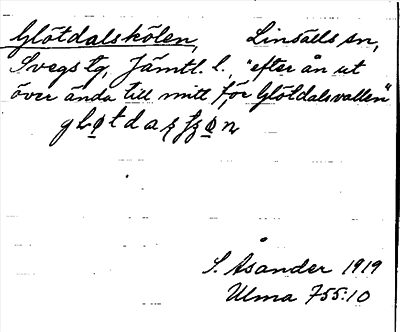 Glötdalskölen, Linsälls sn,
Svegs tg, Jämtl. l., "efter ån ut
över ända till mitt för Glötdalsvallen"
S. Åsander 1919
Ulma 755:10